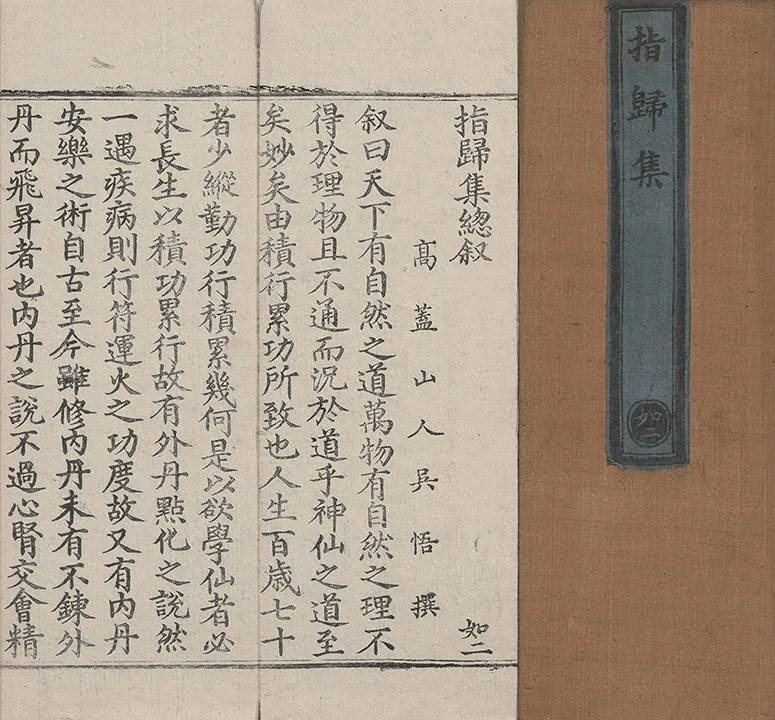 指歸集
如二
指歸集總叙
如二
高蓋山人吳悟撰
叙曰天下有自然之道萬物有自然之理不
得於理物且不通而況於道乎神仙之道至
矣妙矣由積行累功所致也人生百歲七十
者少縱勤功行積累幾何是以欲學仙者必
求長生以積功累行故有外丹點化之說然
一遇疾病則行符運火之功度故又有內丹
安樂之術自古至今雖修內丹未有不鍊外
丹而飛昇者也內丹之說不過心腎交會精